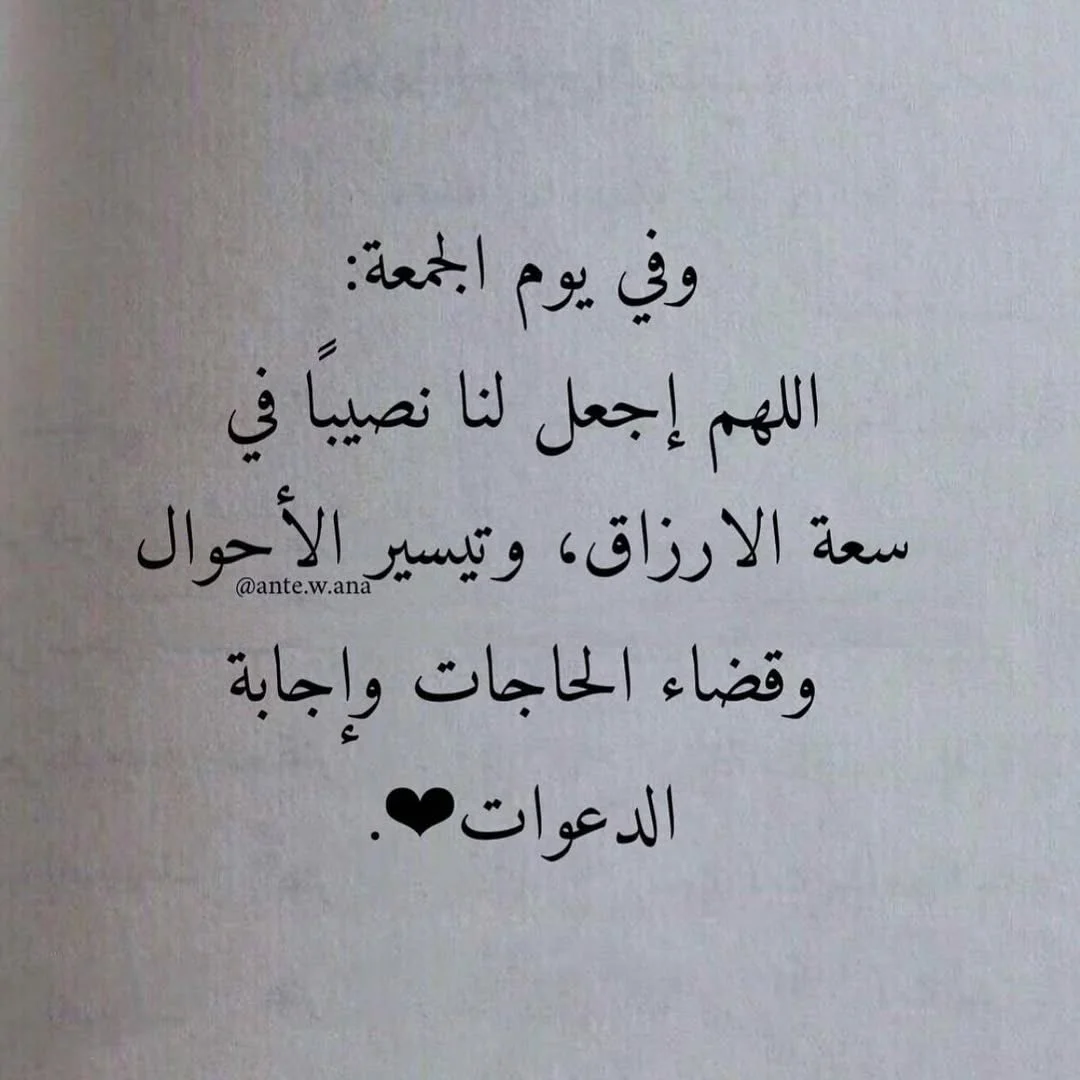 وفي يوم الجمعة:
اللهم إجعل لنا نصيباً في
سعة الارزاق، وتيسير الأحوال
@ante.w.ana
وقضاء الحاجات وإجابة
الدعوات❤.